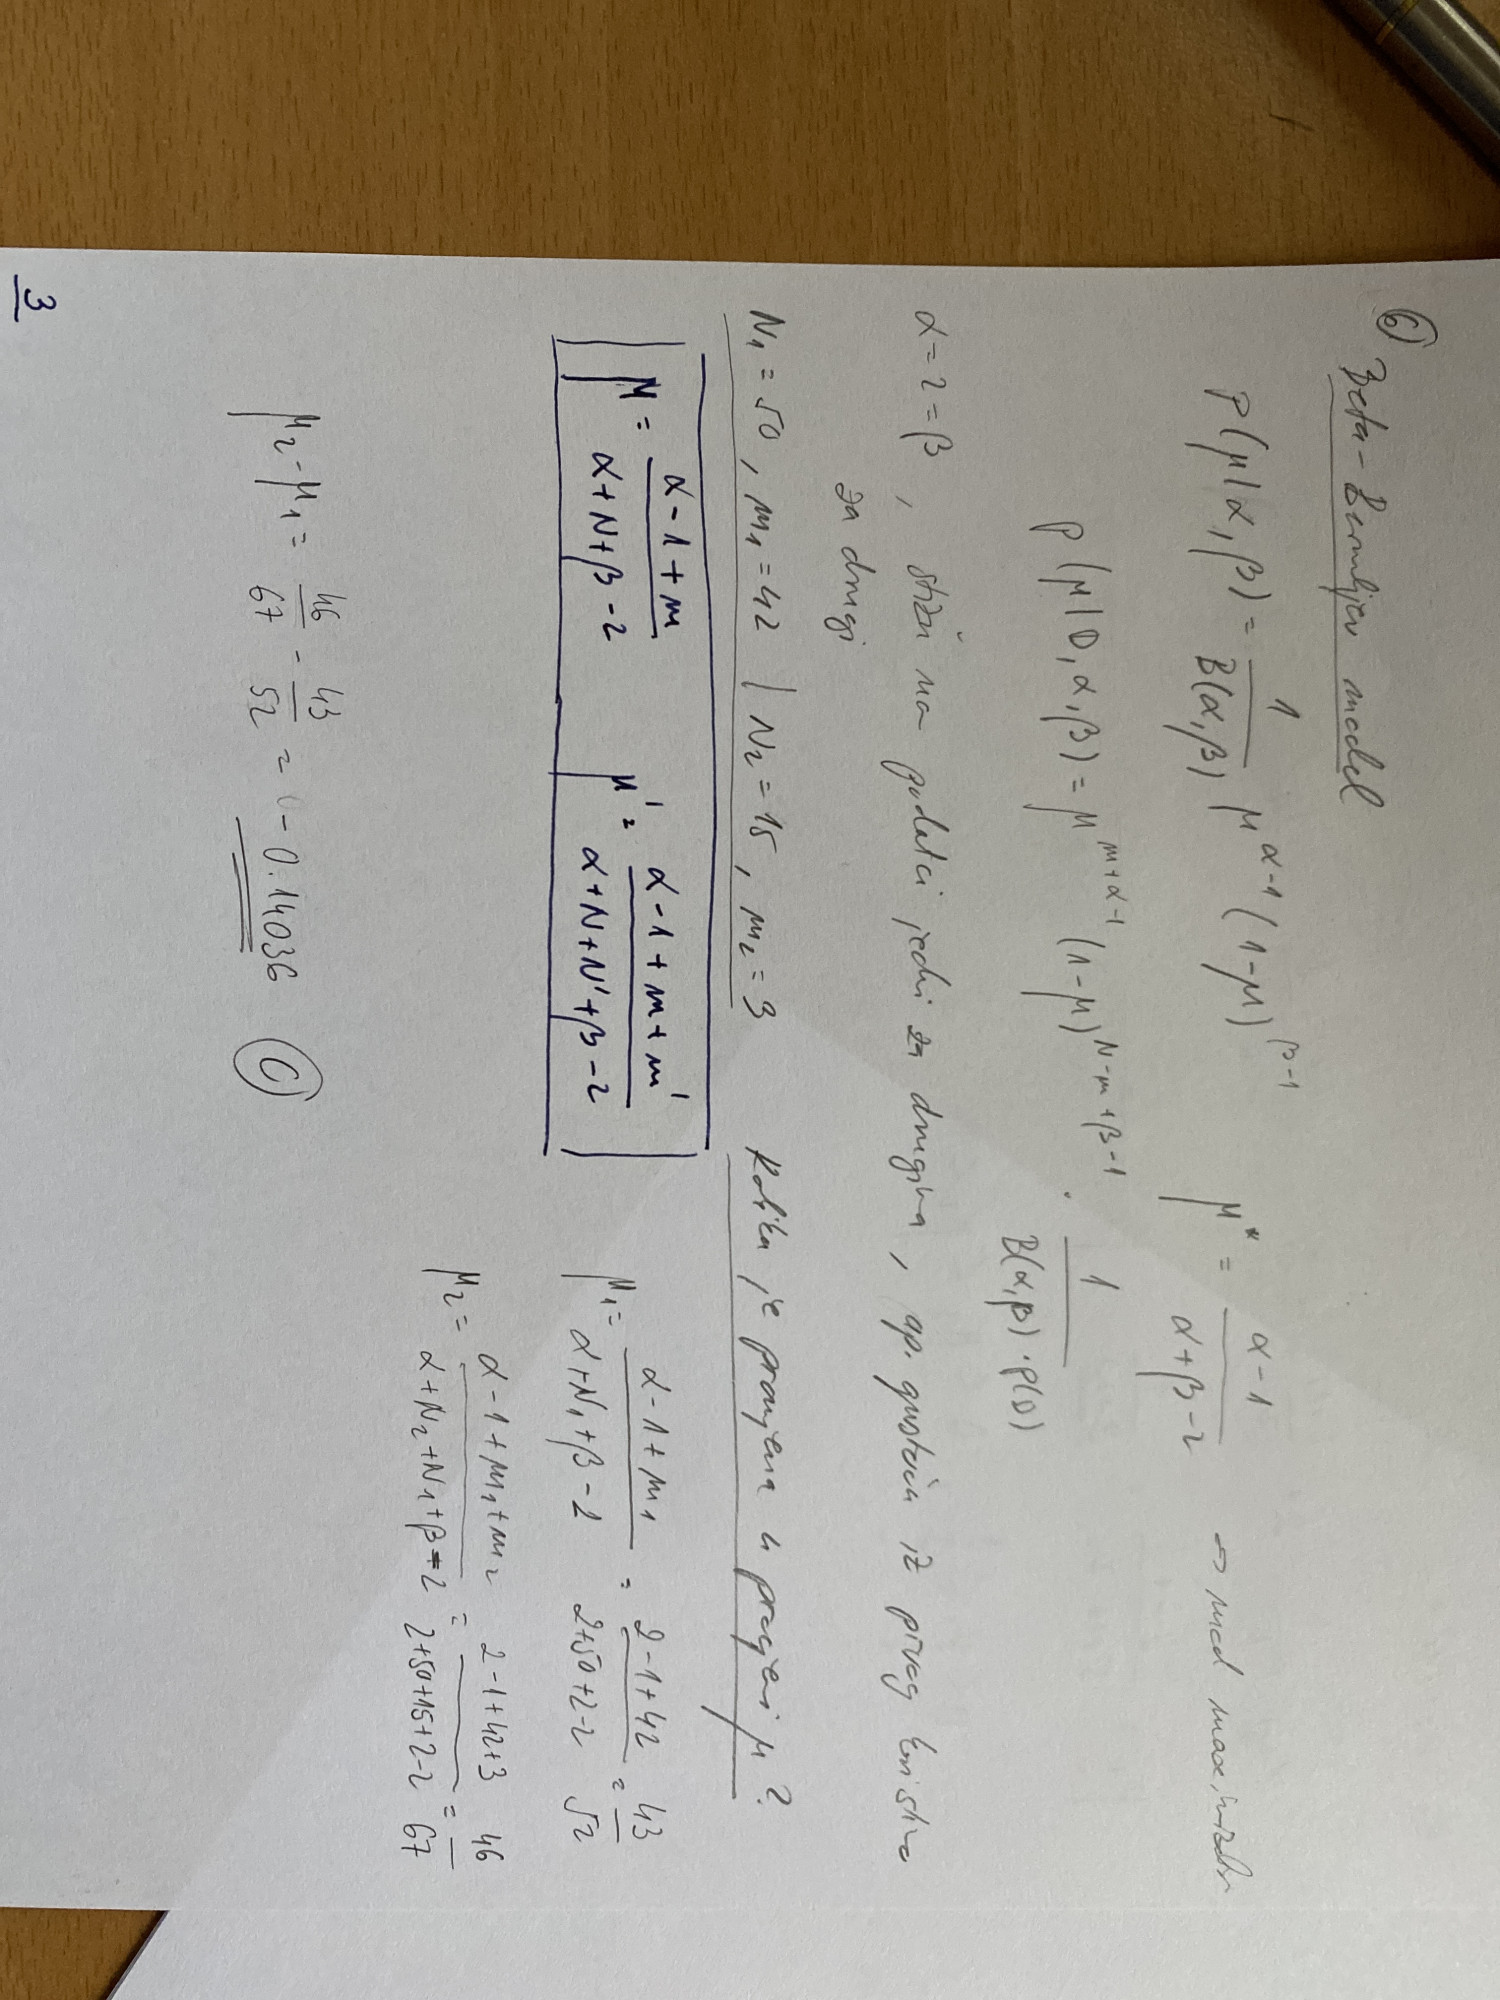 6) Beta-Bernulijev model
P(μ|α,β) = 1/B(α,β) μ^(α-1) (1-μ)^(β-1)   μ* = (α-1)/(α+β-2) → mod
P(μ|D,α,β) = μ^(m+α-1) (1-μ)^(N-m+β-1) · 1/(B(α,β)·P(D))
α=2=β, stižu na podatci jedni za drugima, ap. iz prvog koristimo
za drugi
N₁=50, m₁=42 | N₂=15, m₂=3   Kolika je promjena u procjeni μ?
μ = (α-1+m)/(α+N+β-2)   μ' = (α-1+m+m')/(α+N+N'+β-2)
μ₁ = (α-1+m₁)/(α+N₁+β-2) = (2-1+42)/(2+50+2-2) = 43/52
μ₂ = (α-1+m₁+m₂)/(α+N₂+N₁+β-2) = (2-1+42+3)/(2+50+15+2-2) = 46/67
μ₂-μ₁ = 46/67 - 43/52 = -0.14036   (C)
3